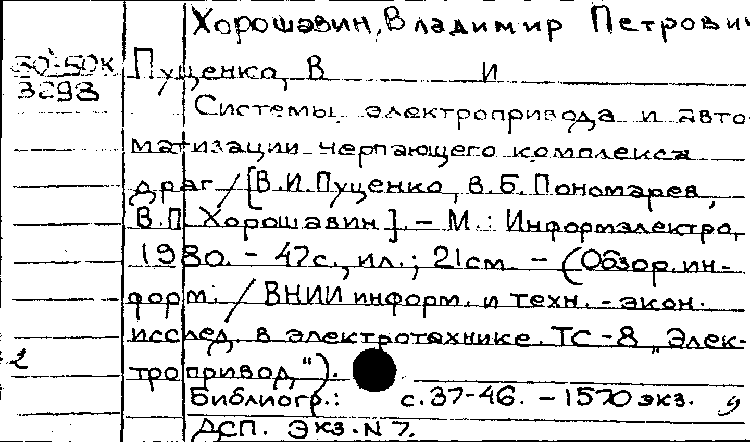 Хорошавин, Владимир Петрович
30-50к Пуценко, В И
3293
Системы электропривода и авто-
матизации черпающего комплекса
драг / [В.И. Пуценко, В.Б. Пономарев,
В.П. Хорошавин]. – М.: Информэлектро,
1980. – 47с., ил.; 21см. – (Обзор. ин-
форм. / ВНИИ информ. и техн.-экон.
исслед. в электротехнике. ТС-8 „Элек-
2
тропривод").
Библиогр.: с.37-46. – 1570 экз.
ДСП. Экз. N 7.